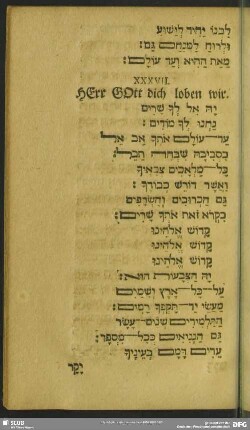 לִבְנוֹ יָחִיד לְיֵשׁוּעַ
וּלְרוּחַ לַמְנַחֵם גַּם:
מֵאֵת הַהִיא וְעַד עוֹלָם:
XXXVII.
HErr GOtt dich loben wir.
יָהּ אֵל לְךָ שָׁרִים
נַחְנוּ לְךָ מוֹדִים:
עַד־עוֹלָם אוֹתְךָ אָב
כָּל־מַלְאָכִים צְבָאֶיךָ
וַאֲשֶׁר דּוֹרֵשׁ כְּבוֹדְךָ:
גַּם הַכְּרוּבִים וְהַשְּׂרָפִים
בְּקֹרָא זֹאת אוֹתְךָ שָׁרִים:
קָדוֹשׁ אֱלֹהֵינוּ
קָדוֹשׁ אֱלֹהֵינוּ
קָדוֹשׁ אֱלֹהֵינוּ
יָהּ הַצְּבָאוֹת הוּא:
עַל־כָּל־אֶרֶץ וְשָׁמַיִם
מַעֲשֵׂי יַד־תָּקְפְּךָ רָמִים:
הַתַּלְמִידִים שְׁנֵים־עָשָׂר
גַּם הַנְּבִיאִים כְּכָל־מִסְפָּר:
עֵדִים דָּמָם בְּעֵינֶיךָ
יָקָר
SLUB
DFG